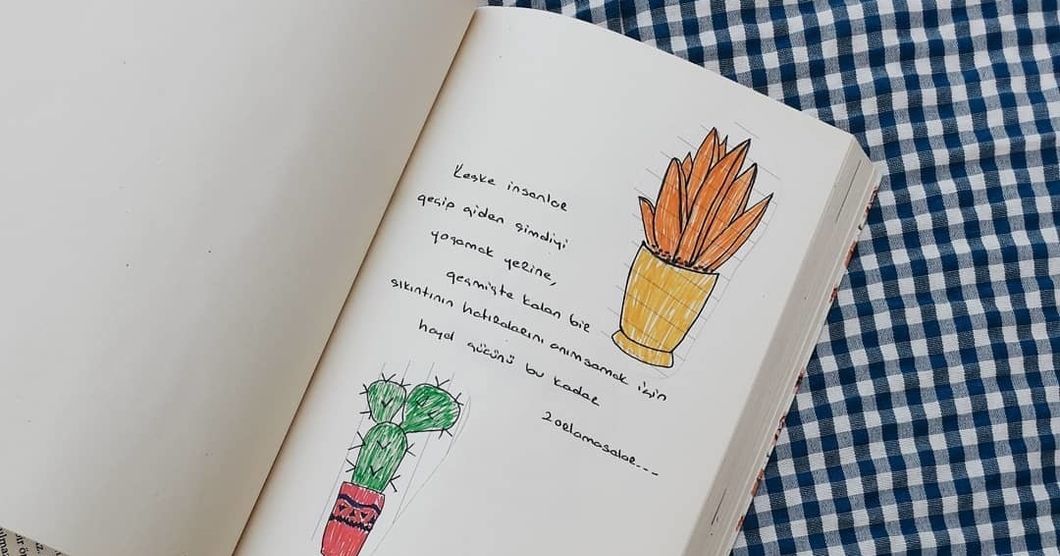 Keşke insanlar
geçip giden şimdiyi
yaşamak yerine,
geçmişte kalan bir
sıkıntının hatıralarını anımsamak için
hayal gücünü bu kadar
zorlamasalar---